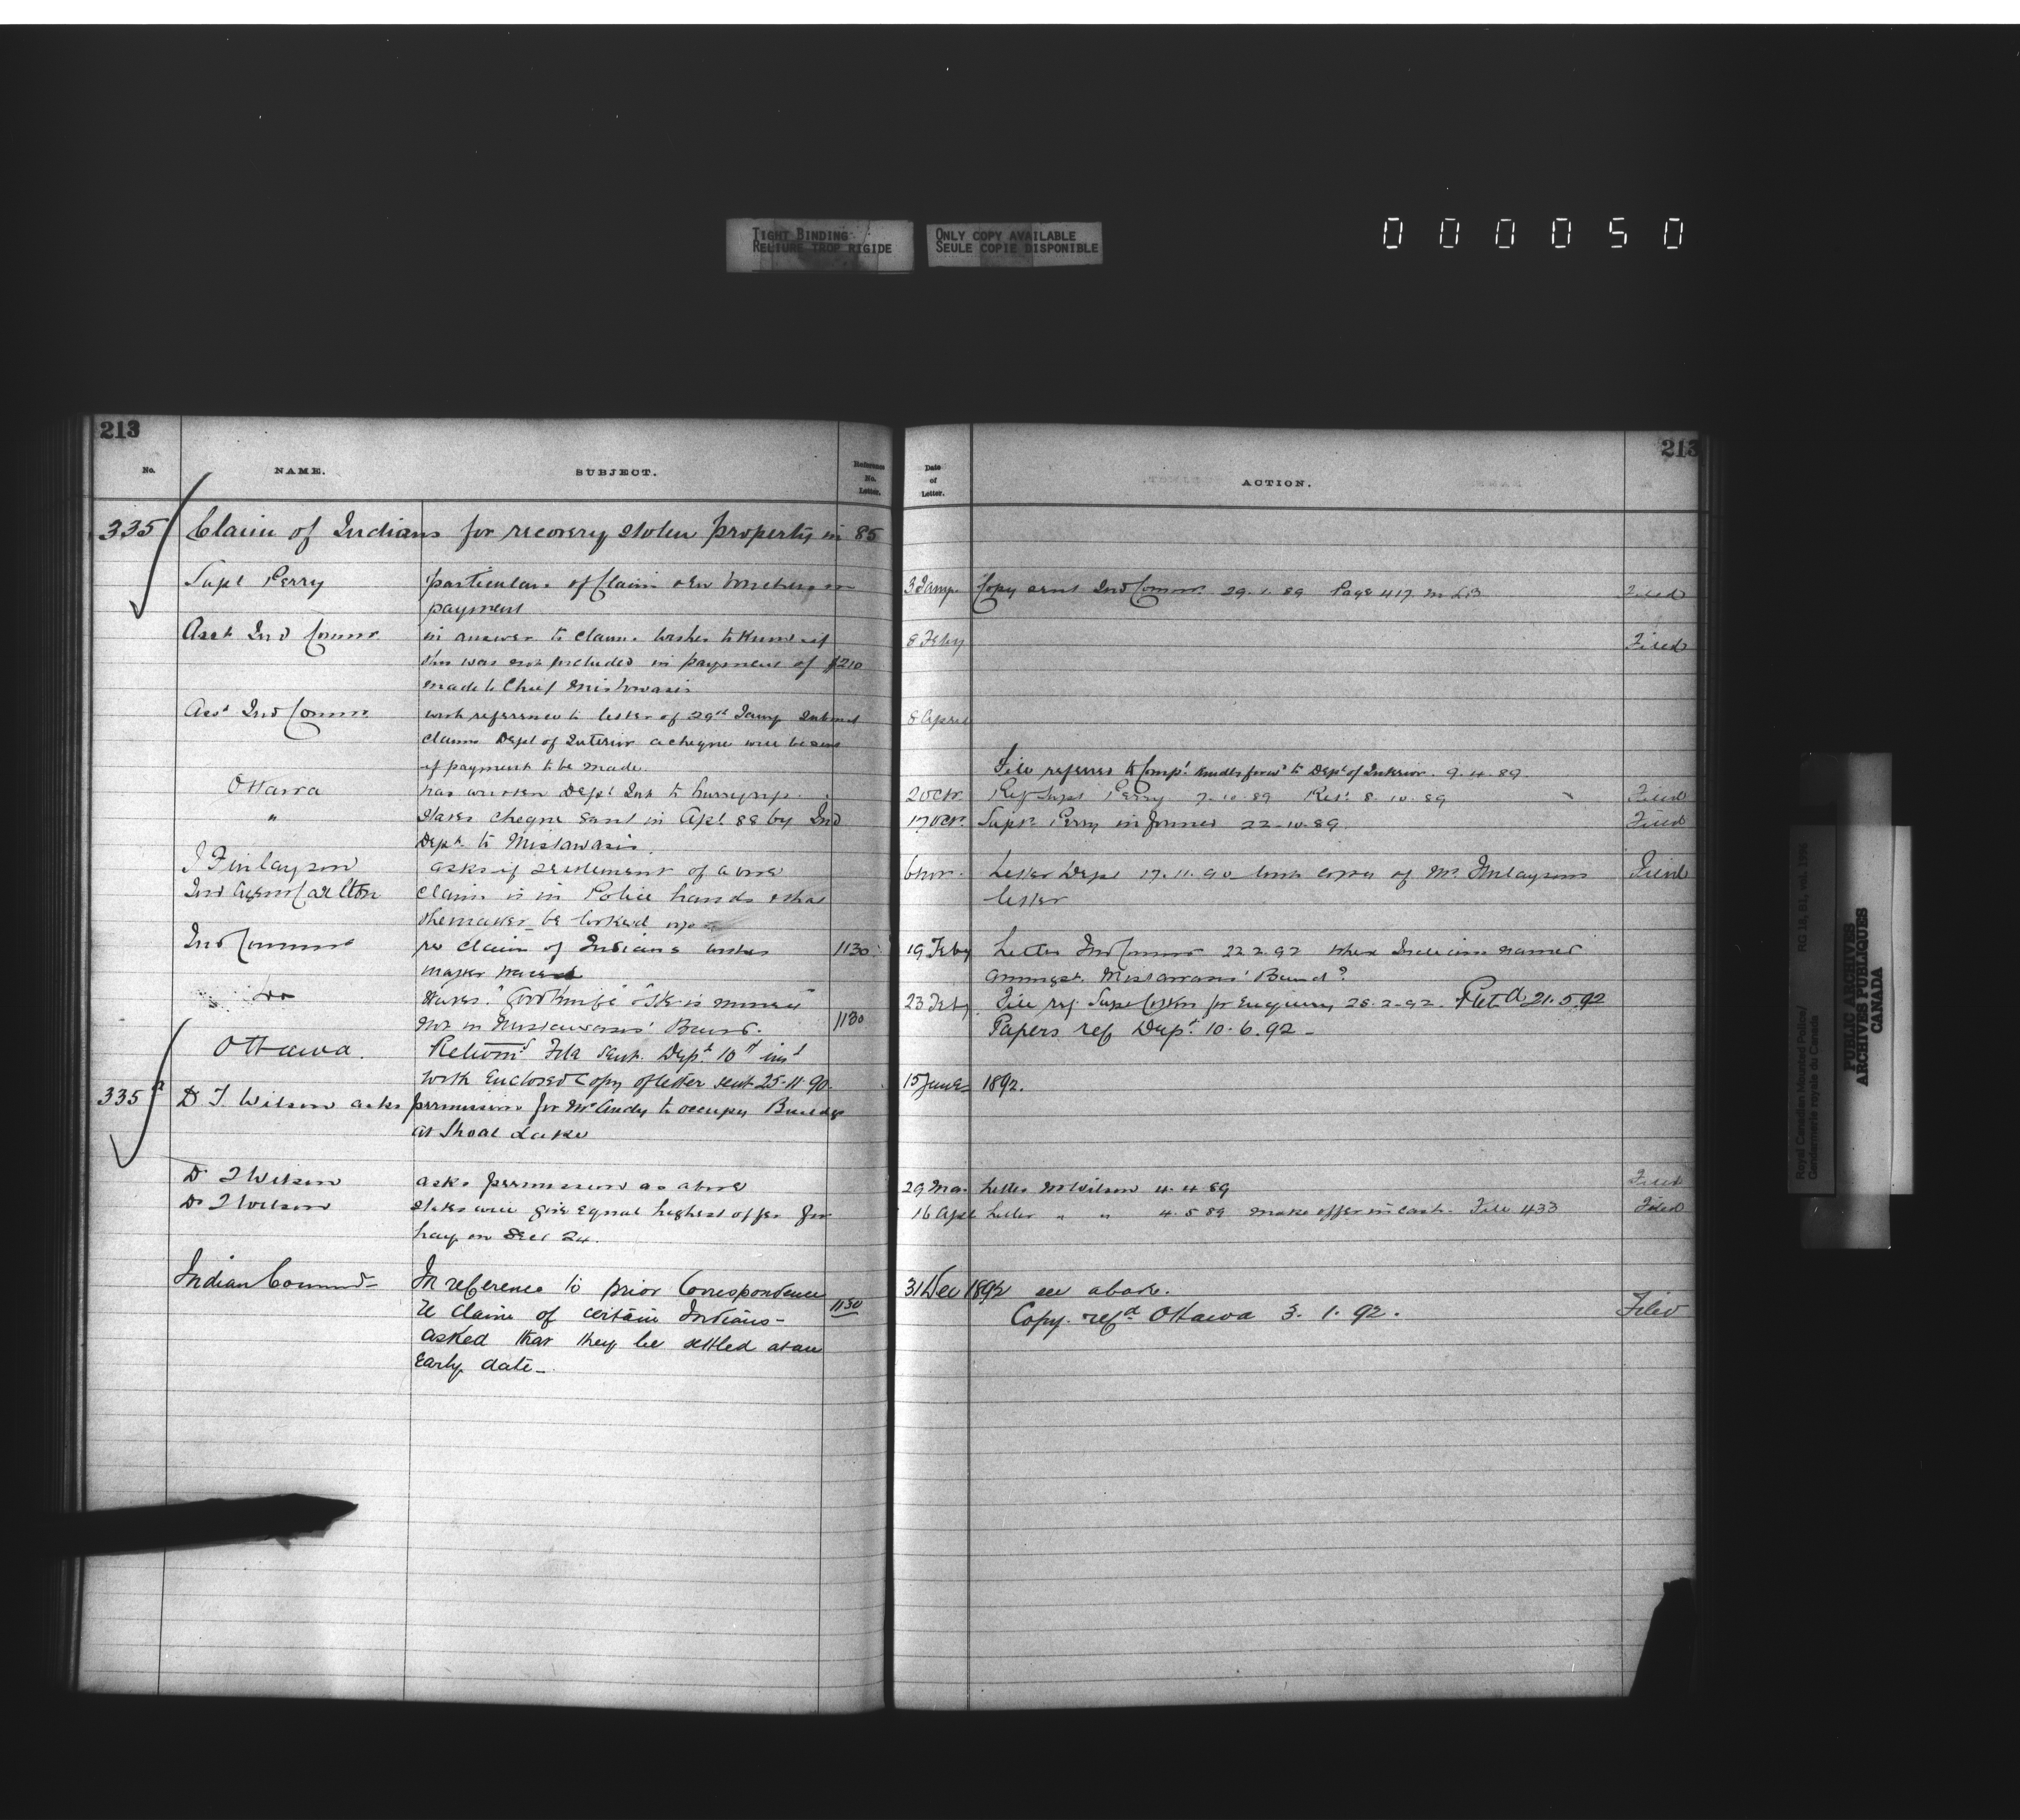 TIGHT BINDING
RELIURE TROP RIGIDE
ONLY COPY AVAILABLE
SEULE COPIE DISPONIBLE
0 0 0 0 5 0
213
No. NAME. SUBJECT. Reference No. Letter.
335 Claim of Indians for recovery stolen property in 85
Supt Perry particulars of Claim
payment
Asst Ind Commr in answer to claim wishes to know if
this was not included in payment of $210
made to Chief Mistowasis
Asst Ind Commr with reference to letter of 29th Jany Submit
claim Dept of Interior a cheque will be sent
if payment to be made
Ottawa has written Dept Int to hurry up
" States cheque sent in Apl 88 by Ind
Dept to Mistawasis.
J Finlayson asks if settlement of above
Ind Agent Carlton claim is in Police hands & that
the matter be looked up
Ind Commr re claim of Indians wishes 1130
matter
do States "
not in Mistawasis' Band. 1130
Ottawa. Returnd File sent Dept 10th inst
with Enclosed Copy of letter sent 25-11-90.
335a D T Wilson asks permission for Mr Andy to occupy Buildgs
at Shoal Lake
D T Wilson asks permission as above
Dr T Wilson States will give equal highest offer for
hay on Sec 24.
Indian Commr In reference to prior Correspondence
re claim of certain Indians - 1130
asked that they be settled at an
Early date -
213
Date of Letter. ACTION.
3 Jany Copy sent Ind Commr 29.1.89 Page 417 M LB Filed
8 Feby Filed
8 April
File referred to Compt. 9.4.89.
2 Oct. Ref Supt Perry 7.10.89 Ret. 8.10.89 Filed
17 Oct. Supt Perry informed 22-10-89 Filed
6 Nov. Letter Dept 17.11.90 with copy of Mr Finlaysons Filed
letter
19 Feby Letter Ind Commr 22.2.92 Indians named
amongst Mistawasis' Band?
23 Feby File ref. Supt for Enquiry 28.2.92. Retd 21.5.92
Papers ref Dept. 10.6.92 -
15 June 1892.
29 Mar Letter Mr Wilson 4.4.89 Filed
16 Apl Letter " " 4.5.89 make offer in cash. File 433 Filed
31 Dec 1892 see above.
Copy refd Ottawa 3.1.92. Filed
Royal Canadian Mounted Police/
Gendarmerie royale du Canada
RG 18, B1, vol.
PUBLIC ARCHIVES
ARCHIVES PUBLIQUES
CANADA